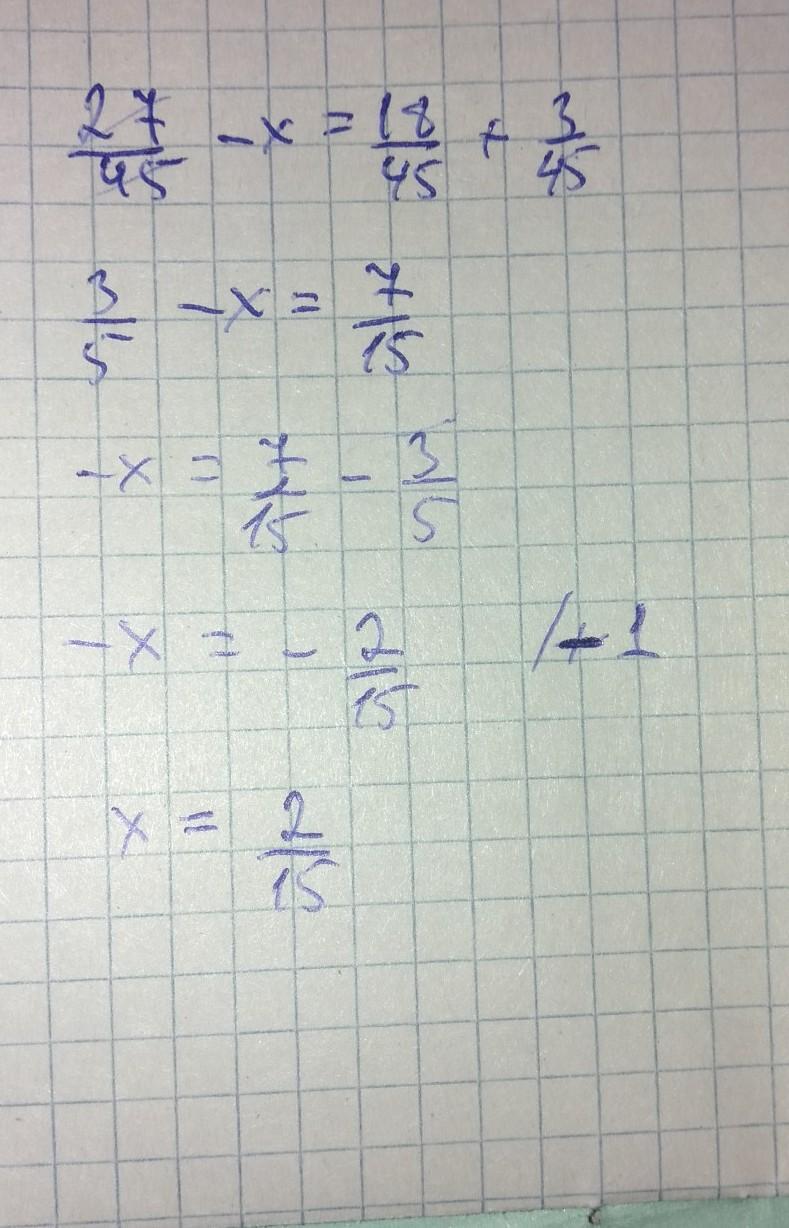 27/45 - x = 18/45 + 3/45
3/5 - x = 7/15
-x = 7/15 - 3/5
-x = - 2/15 /-1
x = 2/15